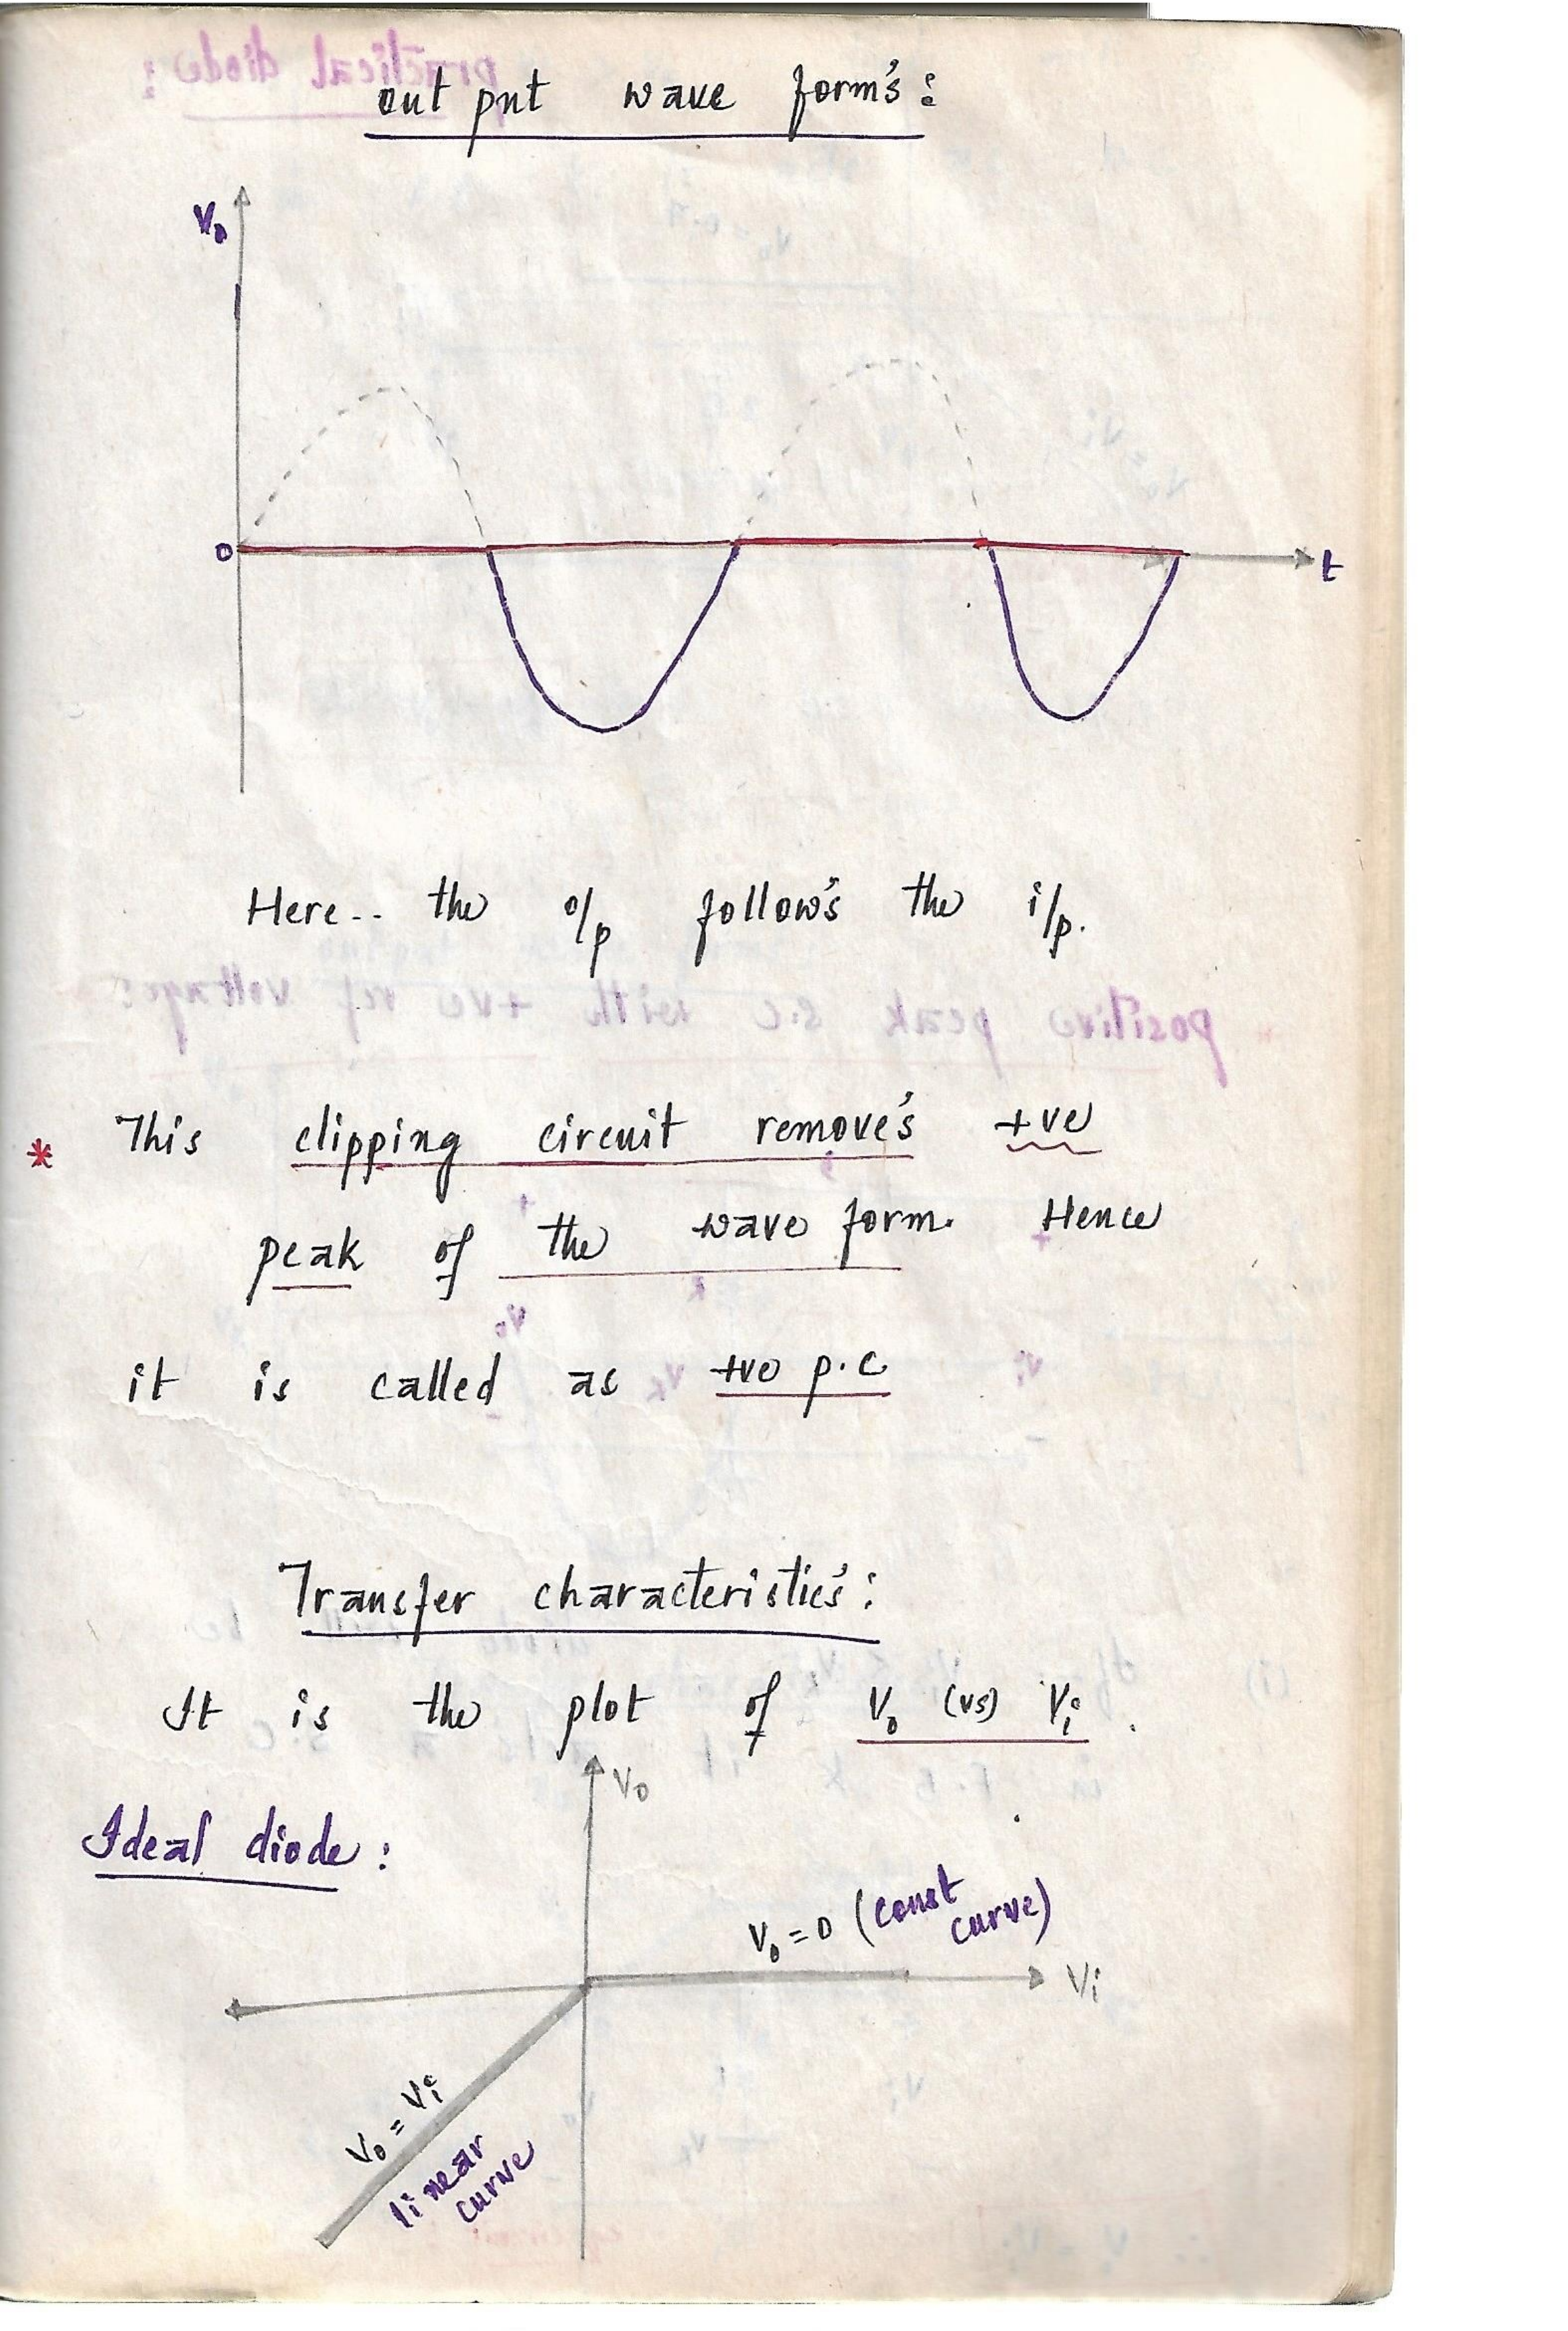 out put wave form's:
V₀
0
t
Here-- the o/p follow's the i/p.
* This clipping circuit remove's +ve
peak of the wave form. Hence
it is called as +ve p.c
Transfer characteristic's:
It is the plot of V₀ (vs) Vi .
V₀
Ideal diode:
V₀ = 0 (const
curve)
Vi
V₀ = Vi
linear
curve